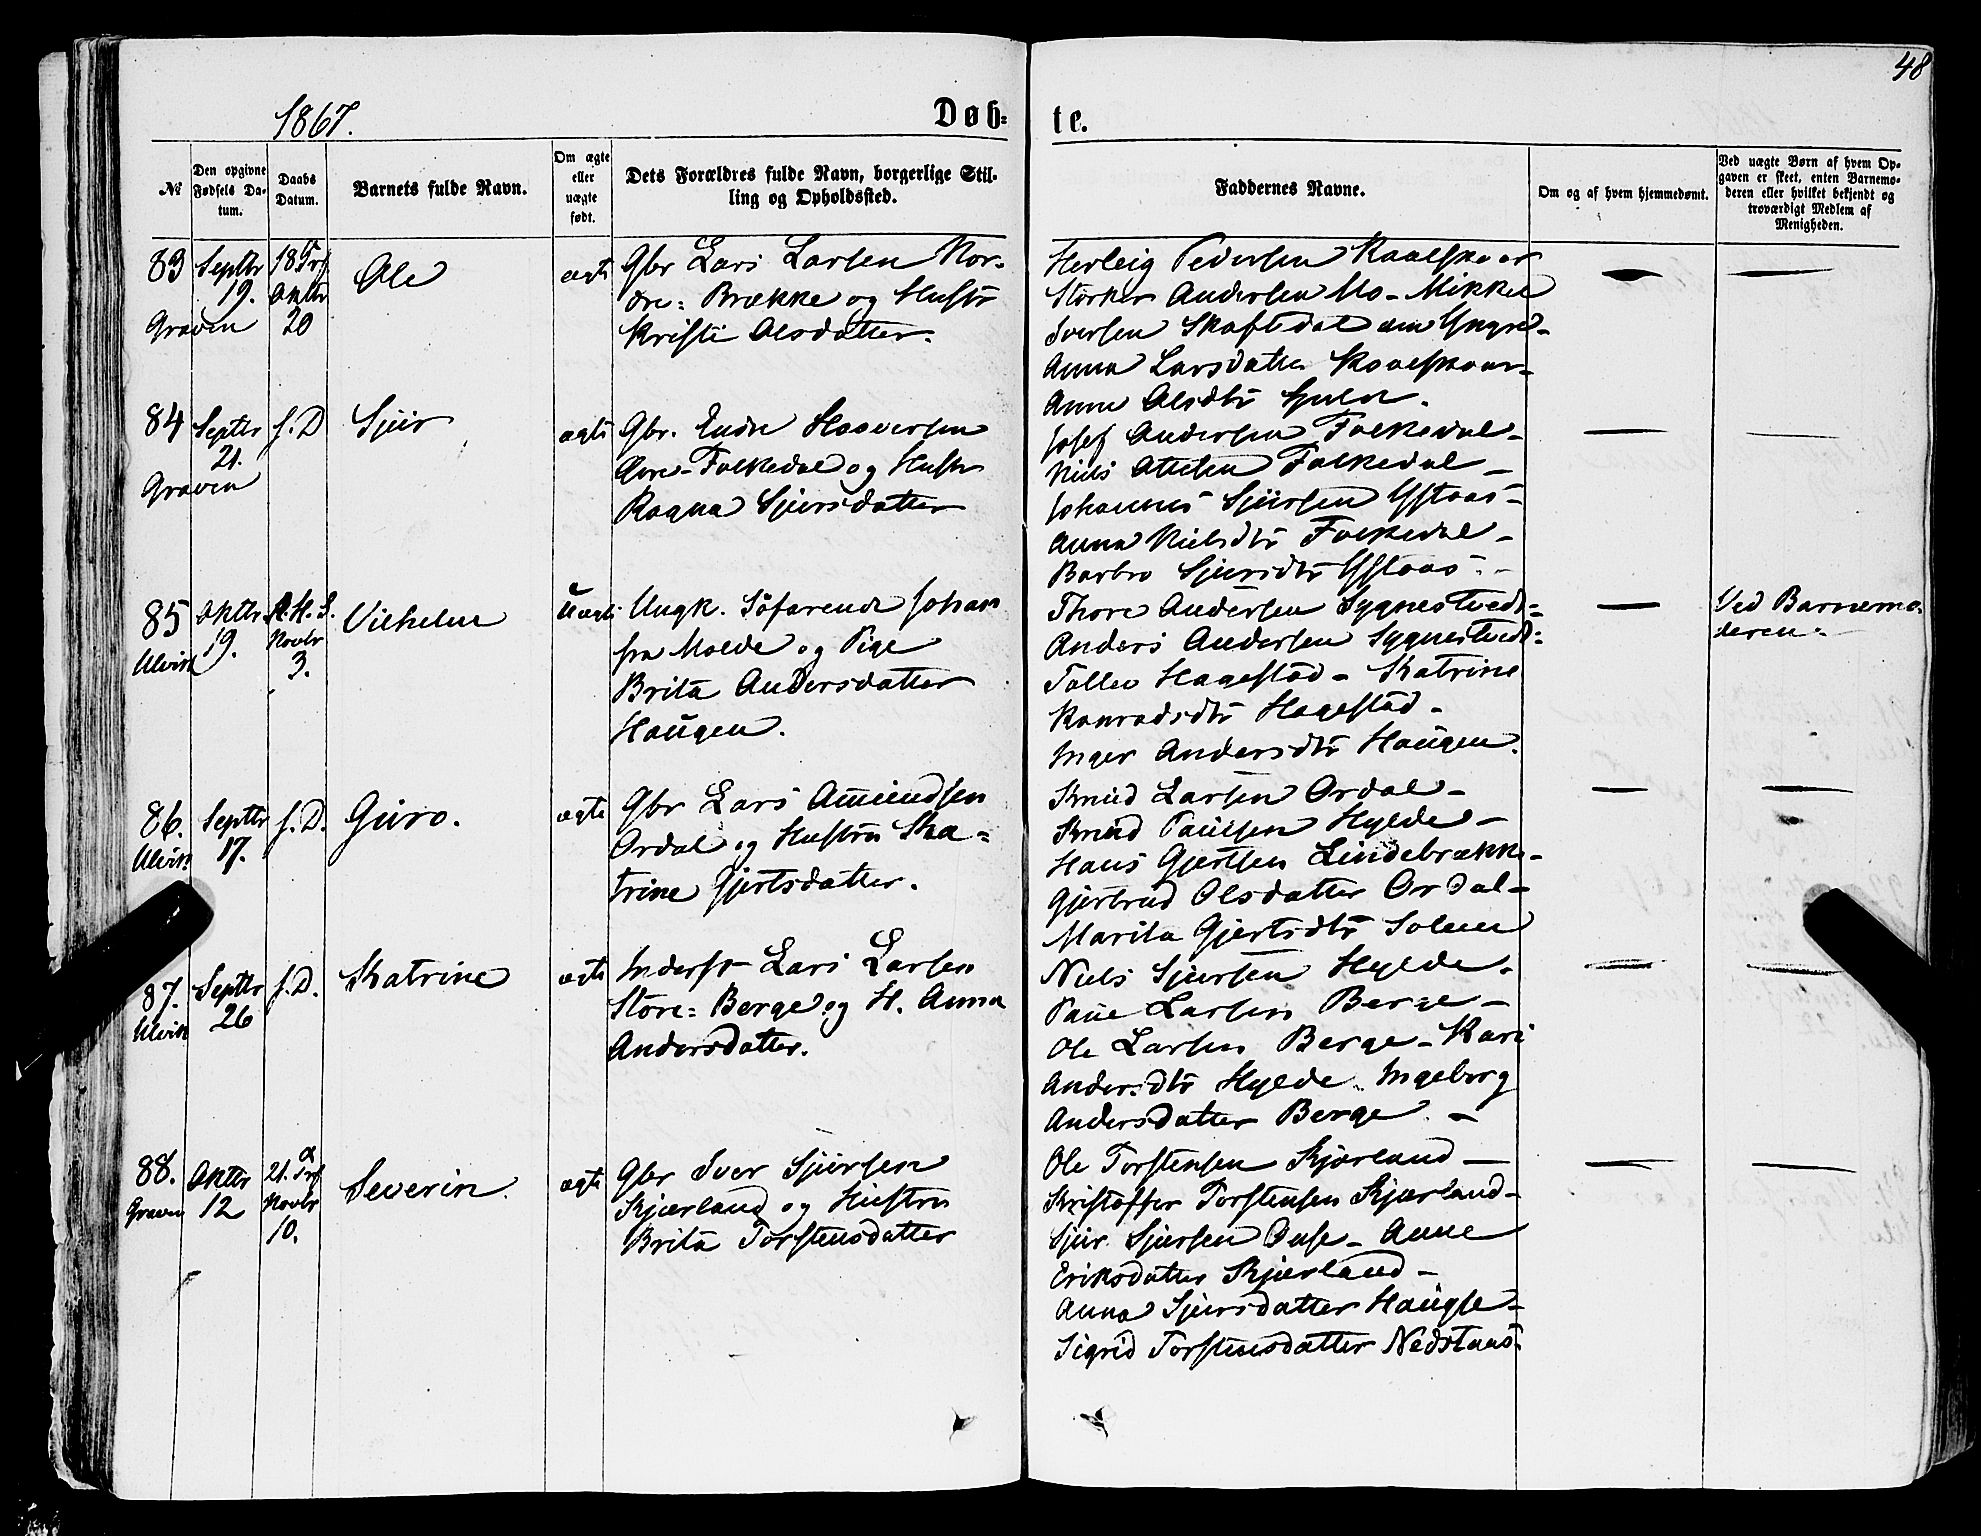 48
1867.
Døb-
te.
№
Den opgivne Fødsels Datum.
Daabs Datum.
Barnets fulde Navn.
Om ægte eller uægte født.
Dets Forældres fulde Navn, borgerlige Stilling og Opholdssted.
Faddernes Navne.
Om og af hvem hjemmedømt.
Ved uægte Børn af hvem Opgaven er skeet, enten Barnemoderen eller hvilket bekjendt og troværdigt Medlem af Menigheden.
83
Septbr 19.
Graven
18 Trf Oktbr 20
Ole
ægte
Gbr Lars Larsen Nor-
dre-Brække og Hustr
Kristi Olsdatter.
Herleig Pedersen Kaalskaar
Størker Andersen Mo - Mikkel
Iversen Skaftedal
Anna Larsdatter Kaalskaar-
Anna Olsdtr
84
Septbr 21.
Graven
s. D
Sjur
ægte
Gbr. Endre Haaversen
Øvre-Folkedal og Hustr
Ragna Sjursdatter
Josef Andersen Folkedal-
Niels Folkedal-
Johannes Sjursen Ystaas-
Anna Nielsdtr Folkedal-
Barbro Sjursdtr Ystaas-
85
Ulvik
Oktbr 19.
A.H.S. Novbr 3.
Vilhelm
Uægte
Ungk. Søfarende Johan
fra Molde og Pige
Brita Andersdatter
Haugen.
Thore Andersen Sygnestvedt-
Anders Andersen Sygnestvedt-
Tollev Hagestad - Katrine
Konradsdtr Hagestad-
Inger Andersdtr Haugen.
Ved Barnemo-
deren.
86.
Ulvik
Septbr 17.
s. D.
Guro.
ægte
Gbr Lars Amundsen
Ordal og Hustru Ka-
trine Gjertsdatter.
Knud Larsen Ordal-
Knud Paulsen Hylde-
Hans Gjertsen Lindebrække-
Gjertrud Olsdatter Ordal-
Marita Gjertsdtr Solem
87.
Ulvik
Septbr 26
s. D.
Katrine
ægte
Inderst Lars Larsen
Store-Berge og H. Anna
Andersdatter.
Niels Sjursen Hylde.
Paul Larsen Berge-
Ole Larsen Berge - Kari
Andersdtr Hylde. Ingeborg
Andersdatter Berge. -
88.
Graven
Oktbr 12
21. Trf Novbr 10.
Severin.
ægte
Gbr Iver Sjursen
Kjærland og Hustru
Brita Torstensdatter
Ole Torstensen Kjærland-
Kristoffer Torstensen Kjærland-
Sjur Sjursen - Anne
Eriksdatter Kjærland-
Anna Sjursdatter Haugse-
Sigrid Torstensdatter Nedstaas-